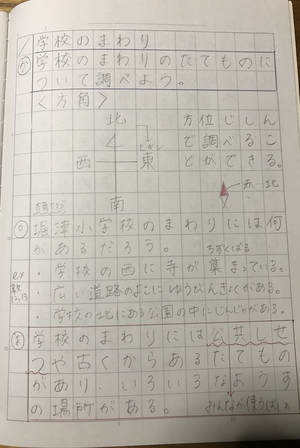 学校のまわり
め 学校のまわりのたてものに
ついて調べよう。
<方角>
北
西 東
南
方位じしん
で調べるこ
とができる。
赤→北
津小学校のまわりには何
があるだろう。
ex ・学校の西に寺が集まっている。
・広い道路のよこにゆうびんきょくがある。
・学校の北にある公園の中にじんじゃがある。
ま 学校のまわりには公共しせ
つや古くからあるたてもの
があり、いろいろなようす
の場所がある。
みんなが使うばしょ